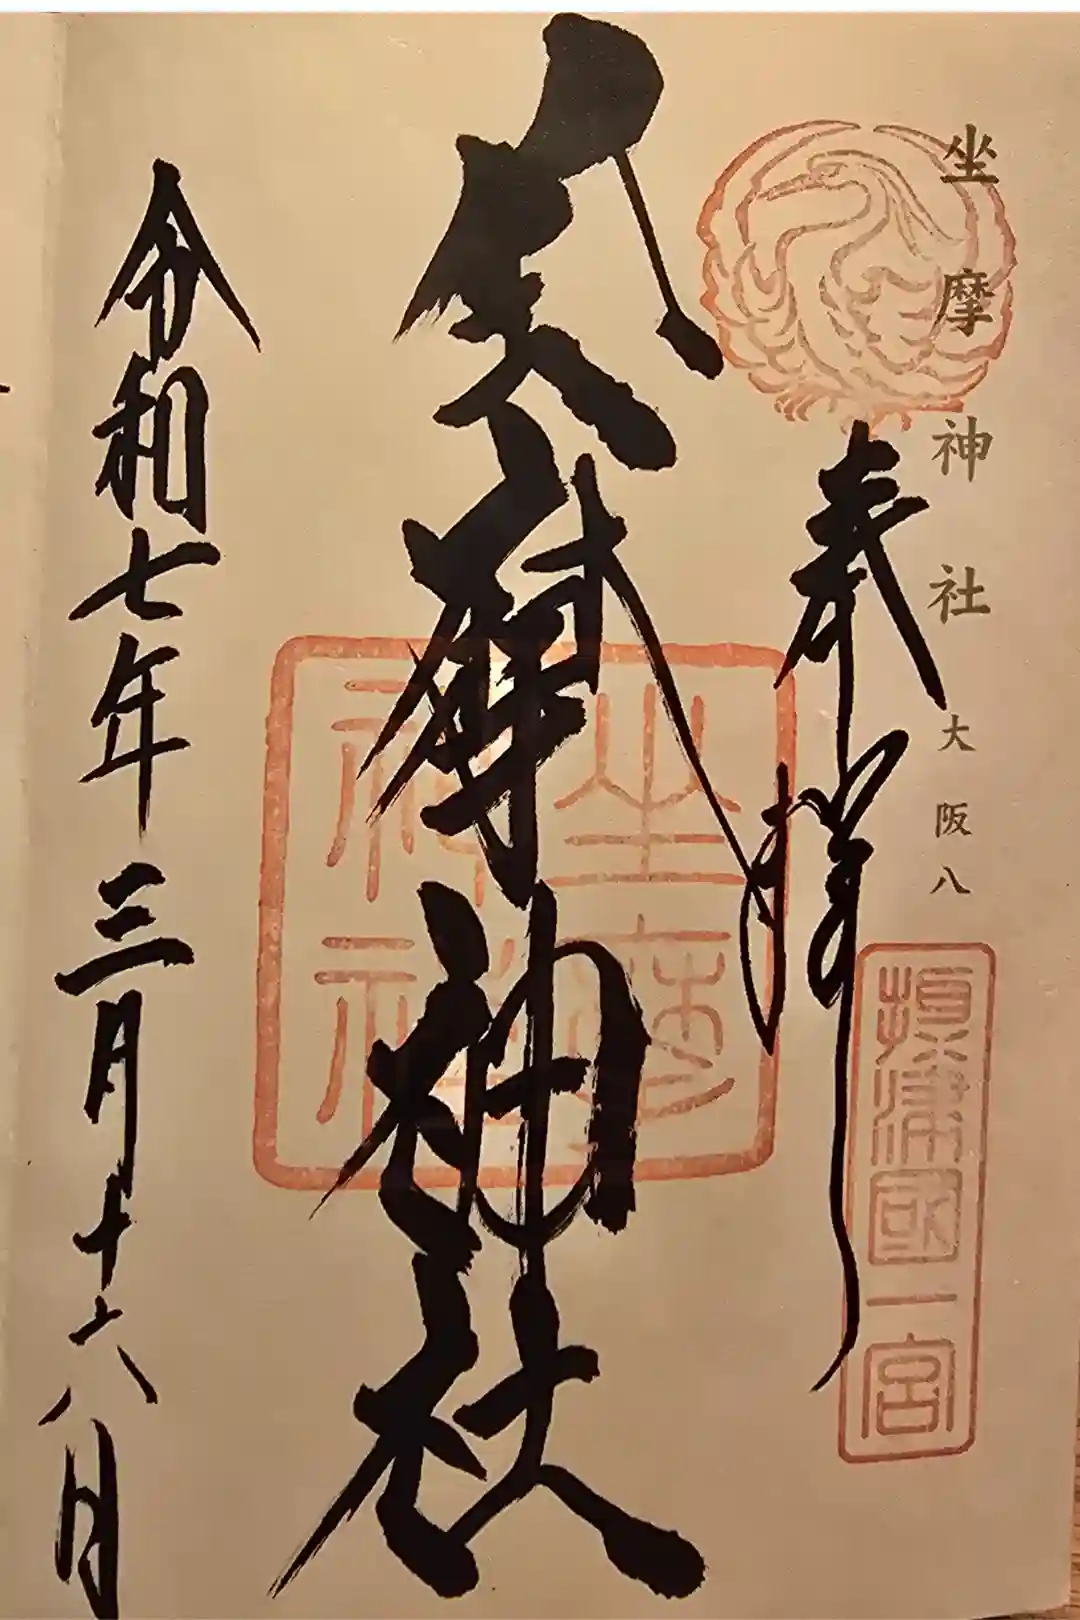 坐摩神社 大阪八
攝津國一宮
奉拝
坐摩神社
坐摩
神社
令和七年三月十六日